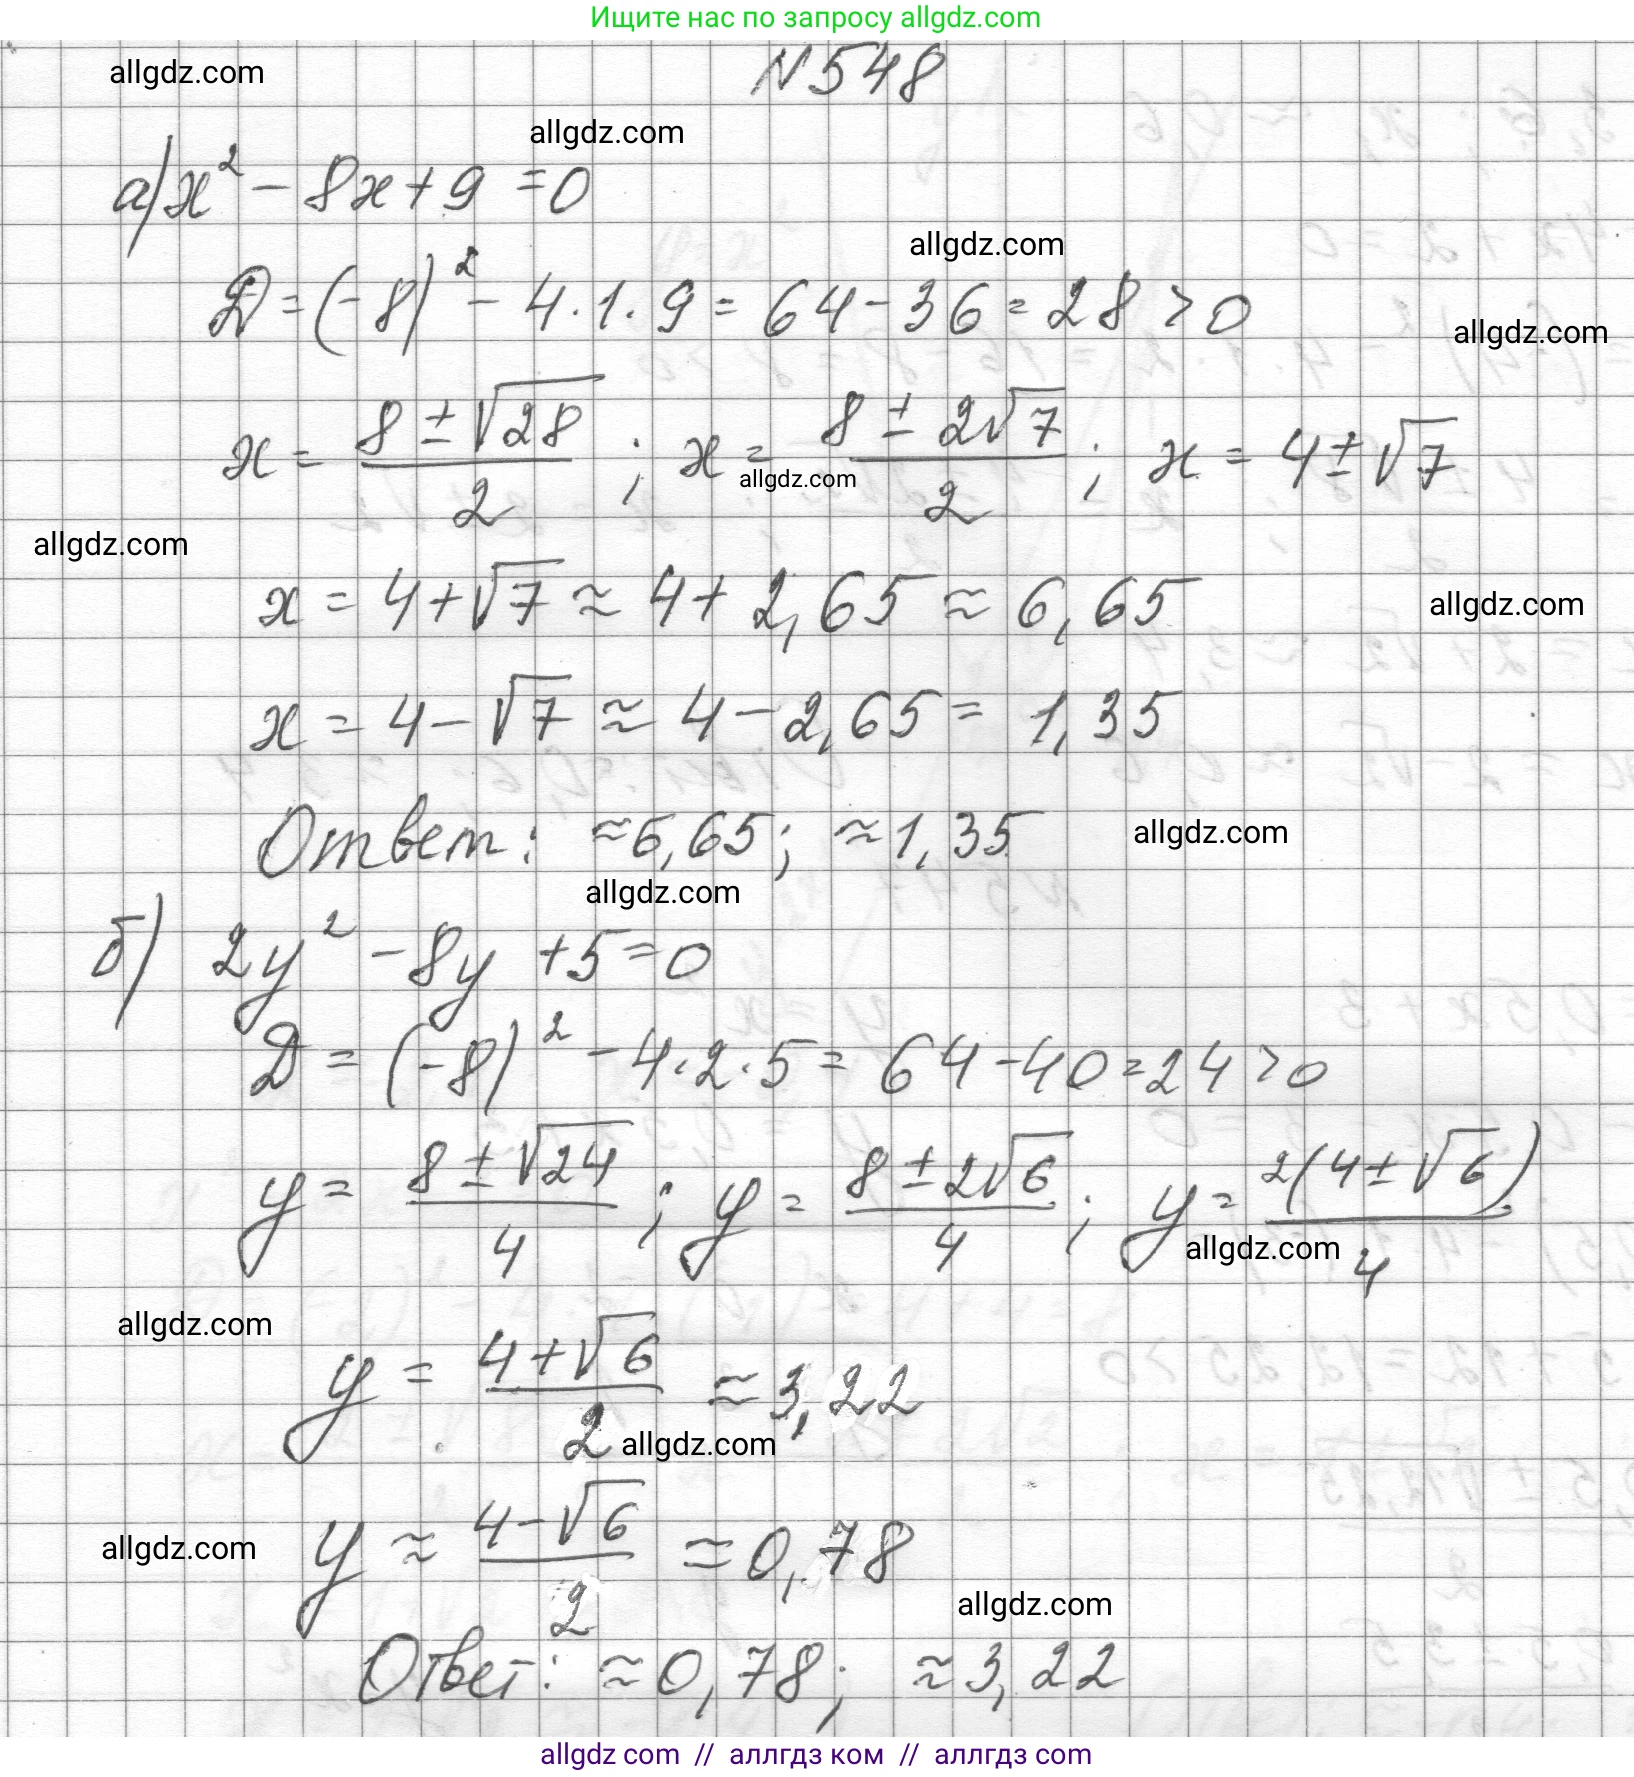 Ищите нас по запросу allgdz.com
allgdz.com
N548
allgdz.com
а) x² - 8x + 9 = 0
allgdz.com
D = (-8)² - 4·1·9 = 64 - 36 = 28 > 0
allgdz.com
x = (8 ± √28)/2 ; x = (8 ± 2√7)/2 ; x = 4 ± √7
allgdz.com
allgdz.com
x = 4 + √7 ≈ 4 + 2,65 ≈ 6,65
allgdz.com
x = 4 - √7 ≈ 4 - 2,65 = 1,35
Ответ: ≈ 6,65; ≈ 1,35
allgdz.com
allgdz.com
б) 2y² - 8y + 5 = 0
D = (-8)² - 4·2·5 = 64 - 40 = 24 > 0
y = (8 ± √24)/4 ; y = (8 ± 2√6)/4 ; y = 2(4 ± √6)/4
allgdz.com
allgdz.com
y = (4 + √6)/2 ≈ 3,22
allgdz.com
y ≈ (4 - √6)/2 = 0,78
allgdz.com
allgdz.com
Ответ: ≈ 0,78; ≈ 3,22
allgdz com // аллгдз ком // аллгдз com